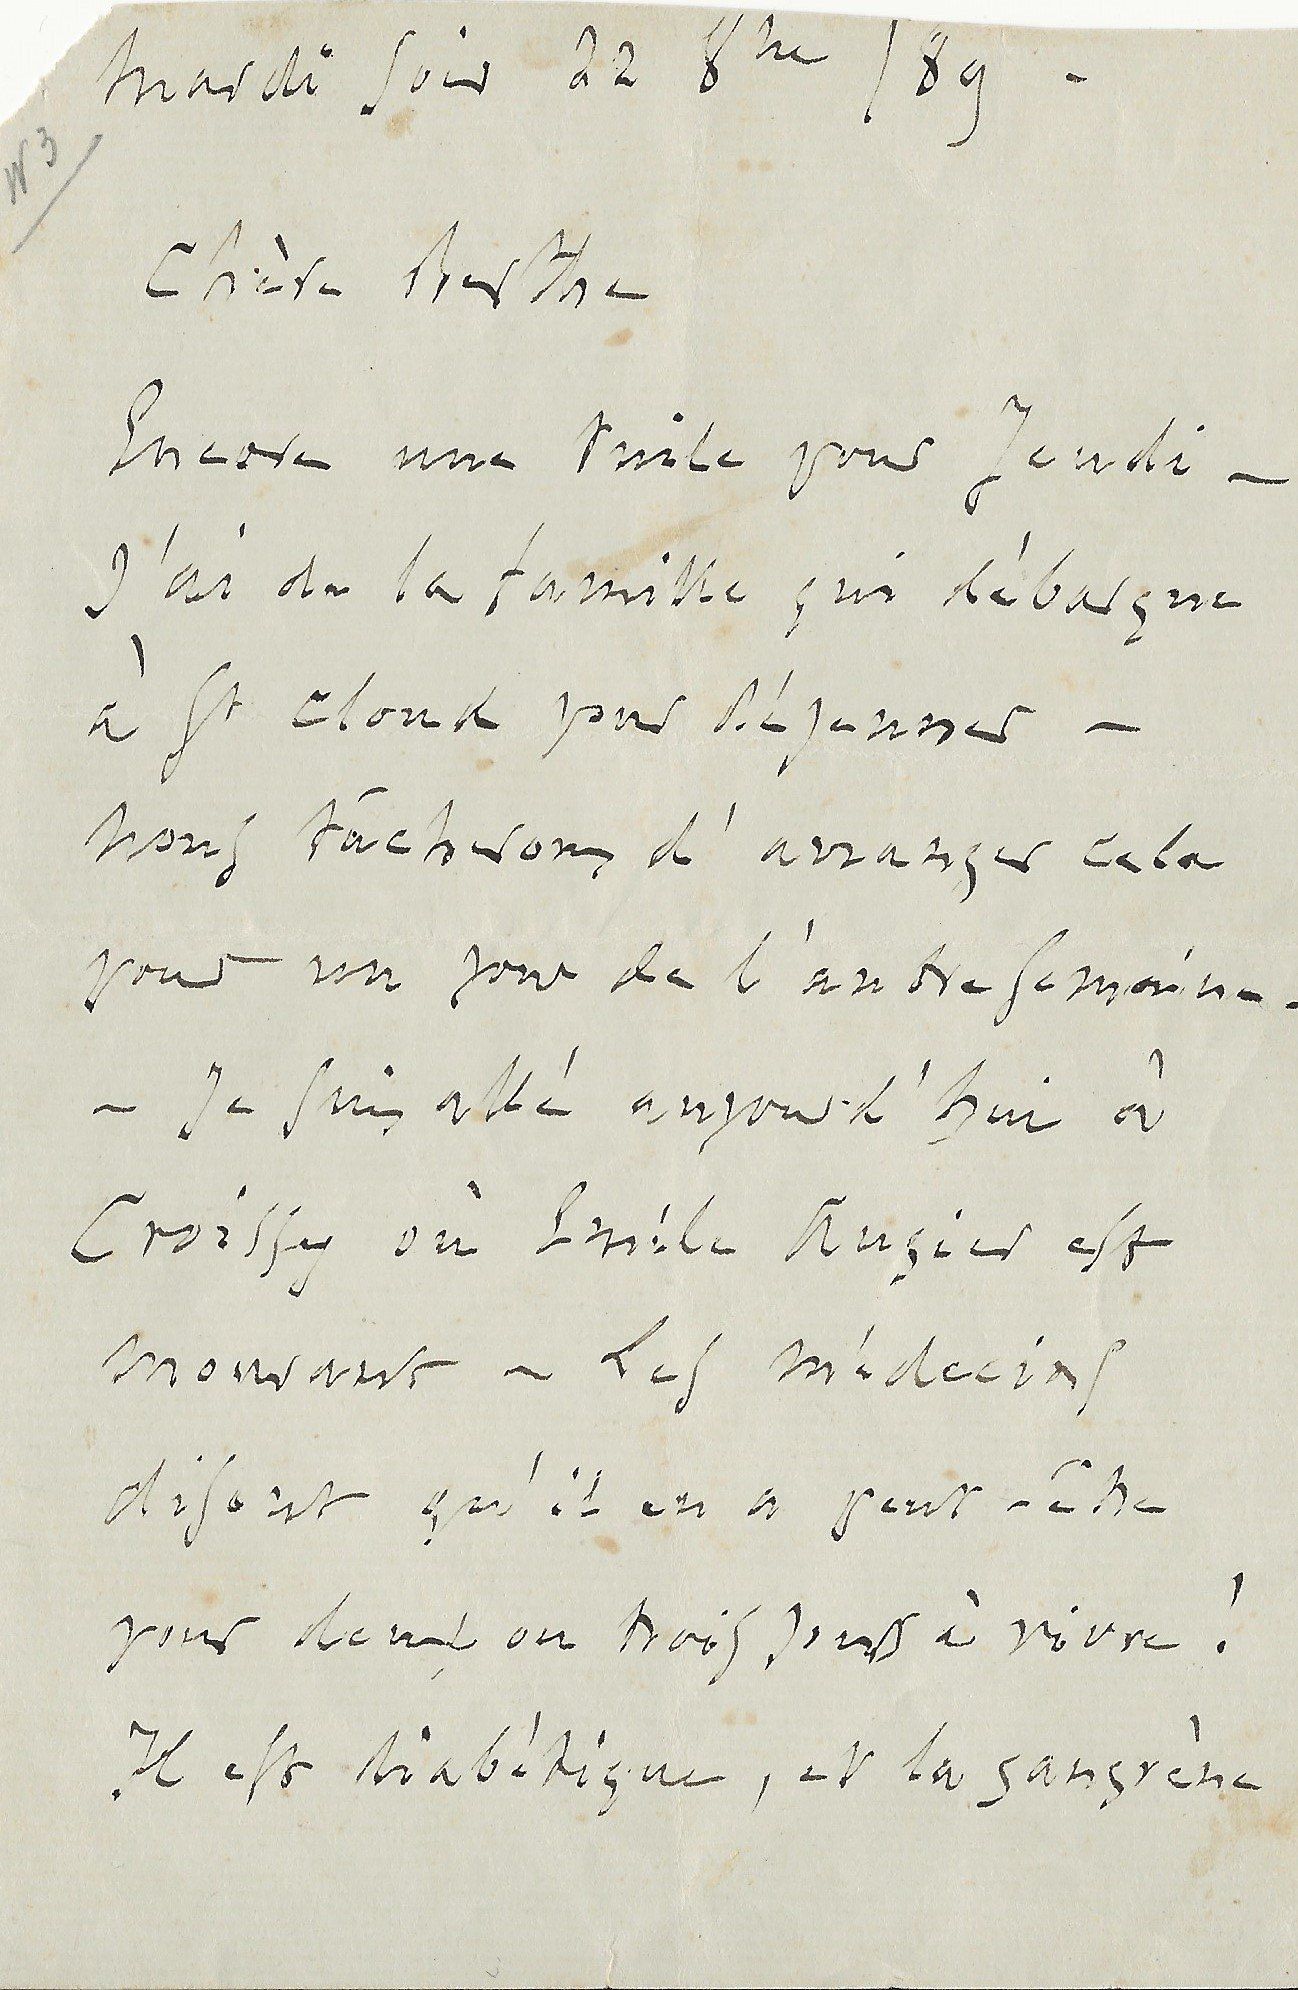 Mardi soir 22 8bre /89 -
N 3
Chère Berthe
Encore une tuile pour Jeudi -
J'ai de la famille qui débarque
à St Cloud pour déjeuner -
nous tâcherons d'arranger cela
pour un jour de l'autre semaine -
- Je suis allé aujourd'hui à
Croissy où Emile Augier est
mourant - Les médecins
disent qu'il en a peut-être
pour deux ou trois jours à vivre !
Il est diabétique, et la gangrène